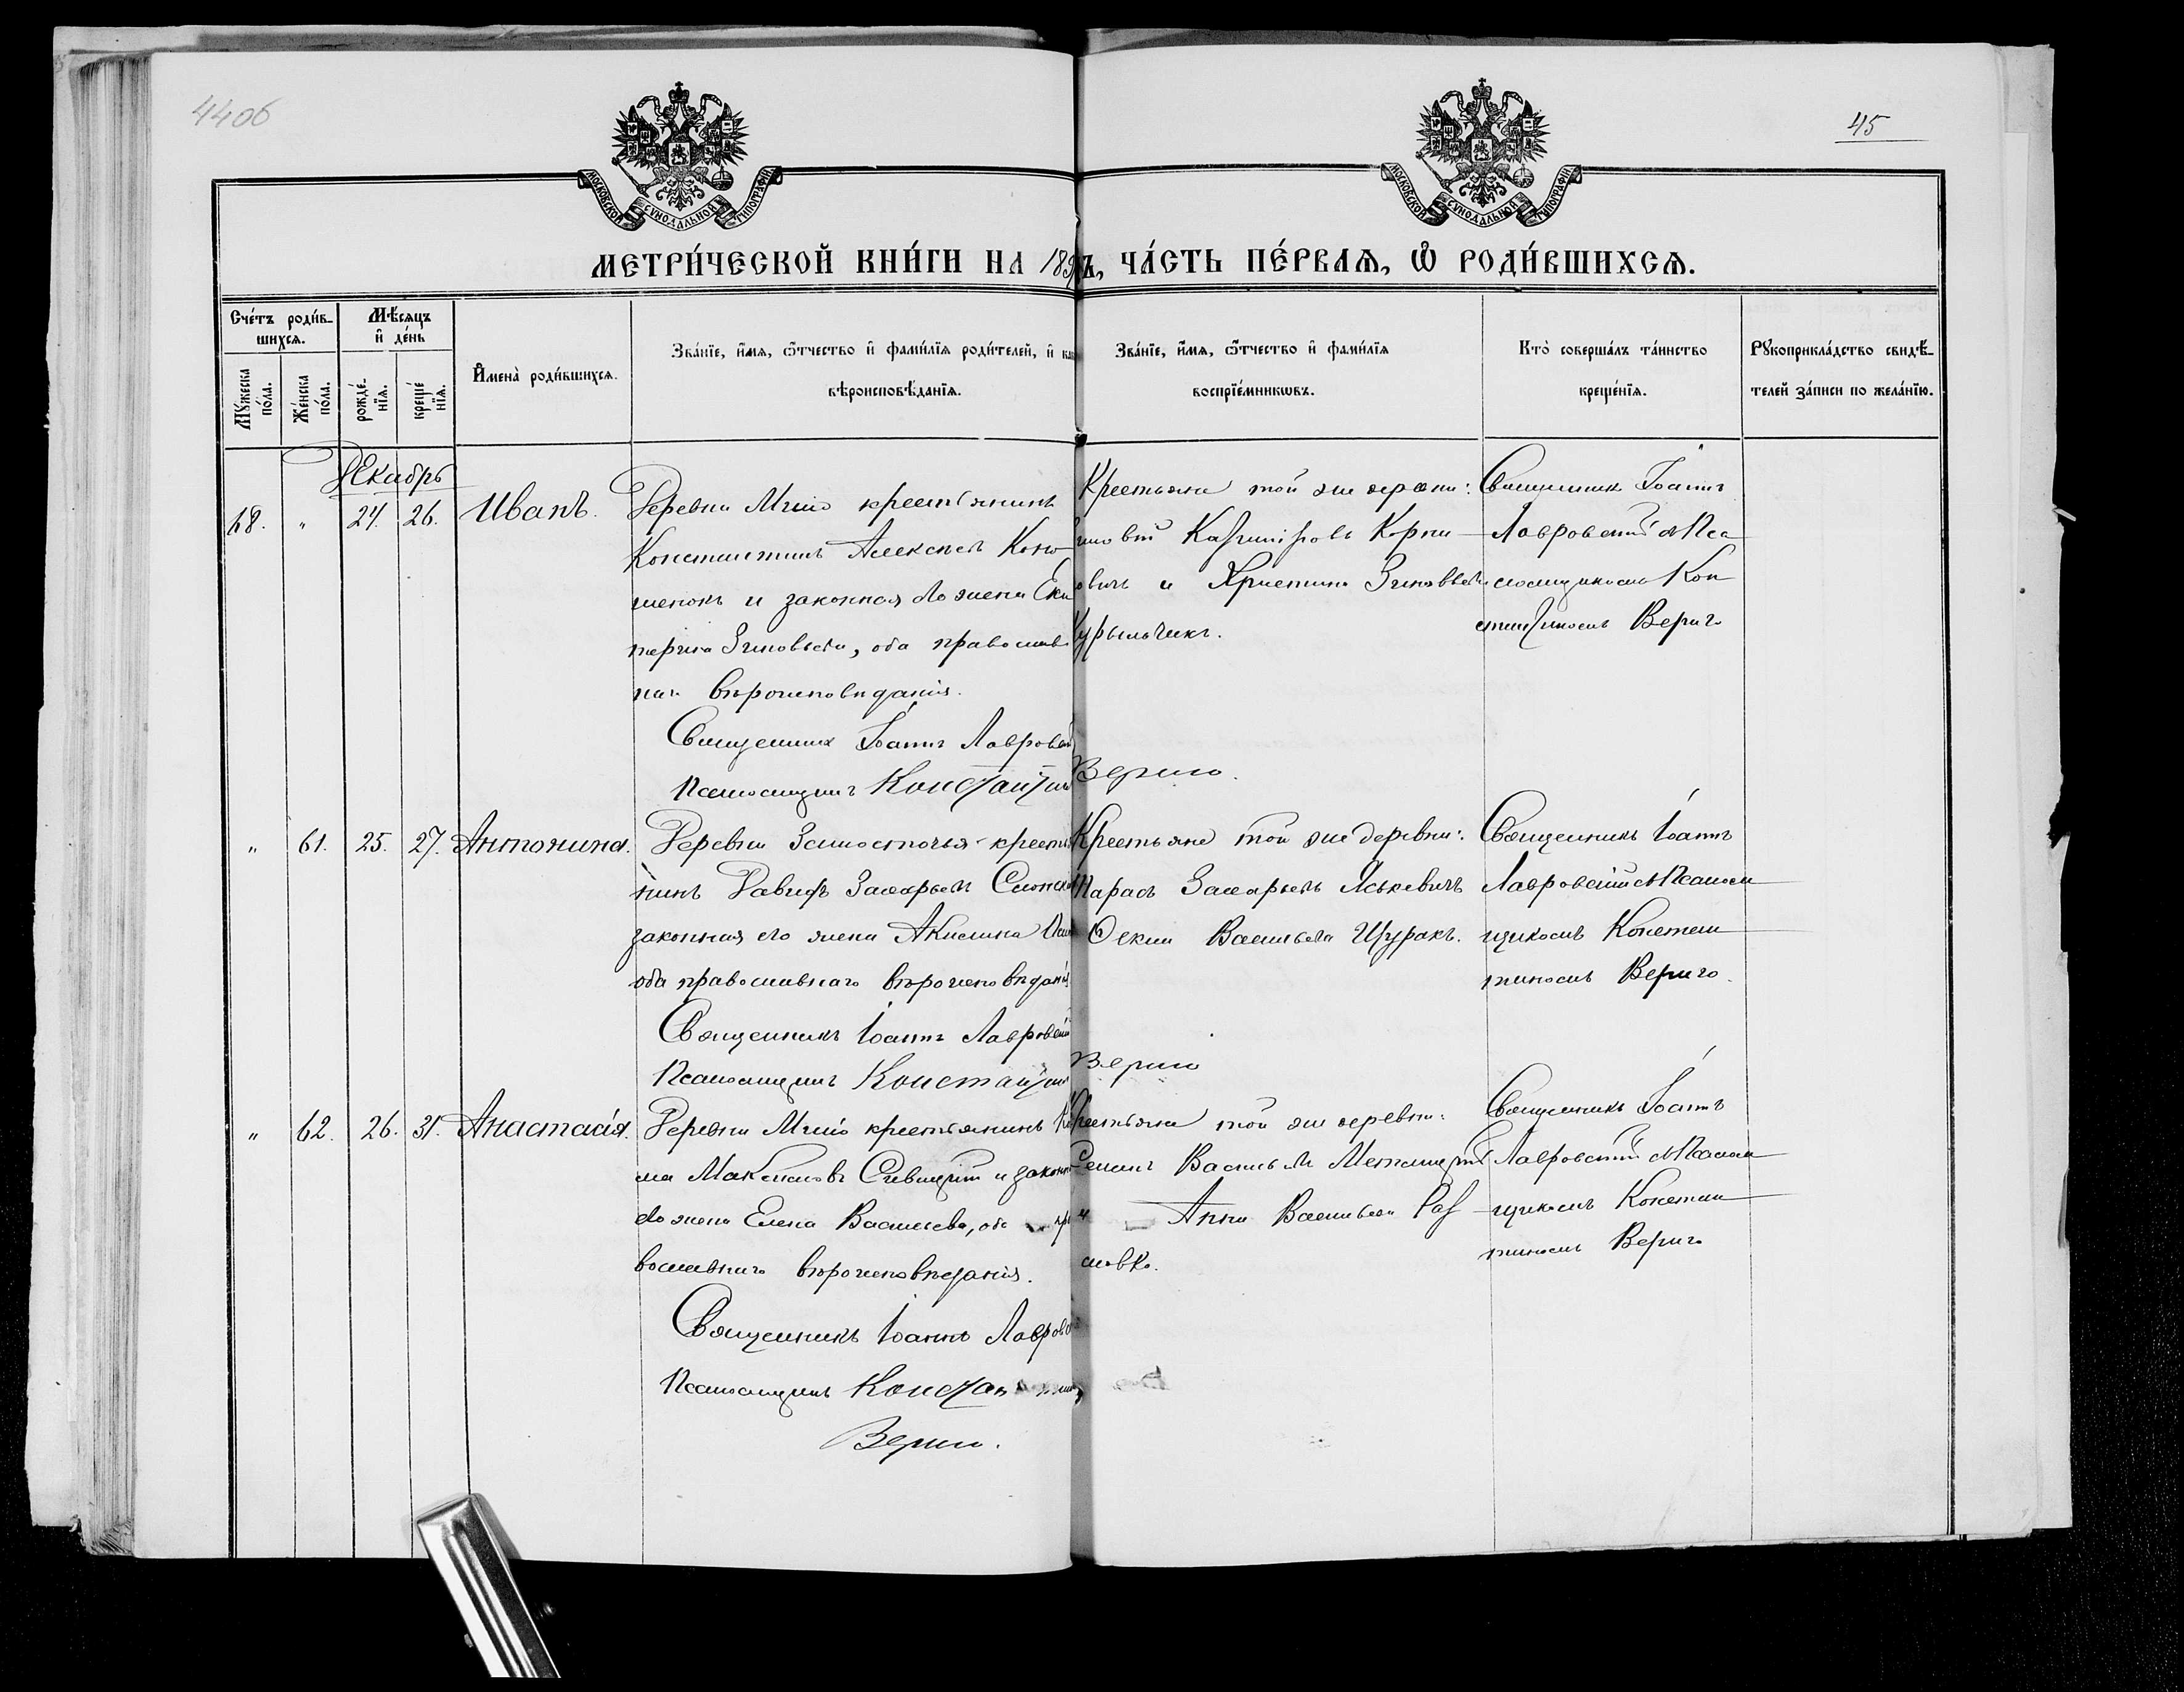 44об
45
МОСКОВСКОЙ СѴНОДАЛЬНОЙ ТИПОГРАФІИ
МОСКОВСКОЙ СѴНОДАЛЬНОЙ ТИПОГРАФІИ
МЕТРИ́ЧЕСКОЙ КНИ́ГИ НА 189 Ъ, ЧА́СТЬ ПЕ́РВАѦ, Ѽ РОДИ́ВШИХСѦ.
Сче́тъ роди́в-
шихсѧ.
Му́жеска по́ла.
Же́нска по́ла.
Мѣ́сѧцъ
и҆ де́нь
рожде́-
нїѧ.
креще́
нїѧ.
И҆мена̀ роди́вшихсѧ.
Зва́нїе, и҆́мѧ, ѻ҆́тчество и҆ фами́лїѧ роди́телей, и҆
вѣроисповѣ́данїѧ.
Зва́нїе, и҆́мѧ, ѻ҆́тчество и҆ фами́лїѧ
воспрїе́мникѡвъ.
Кто̀ соверша́лъ та́инство
креще́нїѧ.
Рꙋкоприкла́дство свидѣ́-
телей за́писи по жела́нїю.
Декабрь
68. " 24. 26. Иванъ.
Деревни крестьянинъ
Константинъ Алексѣевъ
и законная его жена Ека
терина Зиновьева, оба православ
наго вѣроисповѣданія.
Священникъ Іоаннъ Лавровскій
Псаломщикъ Константинъ Вериго.
Крестьяне той же деревни:
Казиміровъ Корни
овичъ и Христина Зиновьева
Курыльчикъ.
Священникъ Іоаннъ
Лавровскій съ Пса
ломщикомъ Кон
стантиномъ Вериго
" 61. 25. 27. Антонина.
Деревни Замосточья крестья
нинъ Давидъ Захарьевъ
законная его жена Акилина
оба православнаго вѣроисповѣданія
Священникъ Іоаннъ Лавровскій
Псаломщикъ Константинъ Вериго
Крестьяне той же деревни:
Тарасъ Захарьевъ Яськевичъ
Ѳекла Васильева Щуракъ.
Священникъ Іоаннъ
Лавровскій съ Псалом
щикомъ Констан
тиномъ Вериго.
" 62. 26. 31. Анастасія.
Деревни крестьянинъ
ма Максимовъ и законная
его жена Елена Васильева, оба пра
вославнаго вѣроисповѣданія.
Священникъ Іоаннъ Лавровскій
Псаломщикъ Константинъ
Вериго.
Крестьяне той же деревни:
Семенъ Васильевъ
и Анна Васильева Раз
ловко.
Священникъ Іоаннъ
Лавровскій съ Псалом
щикомъ Констан
тиномъ Вериго